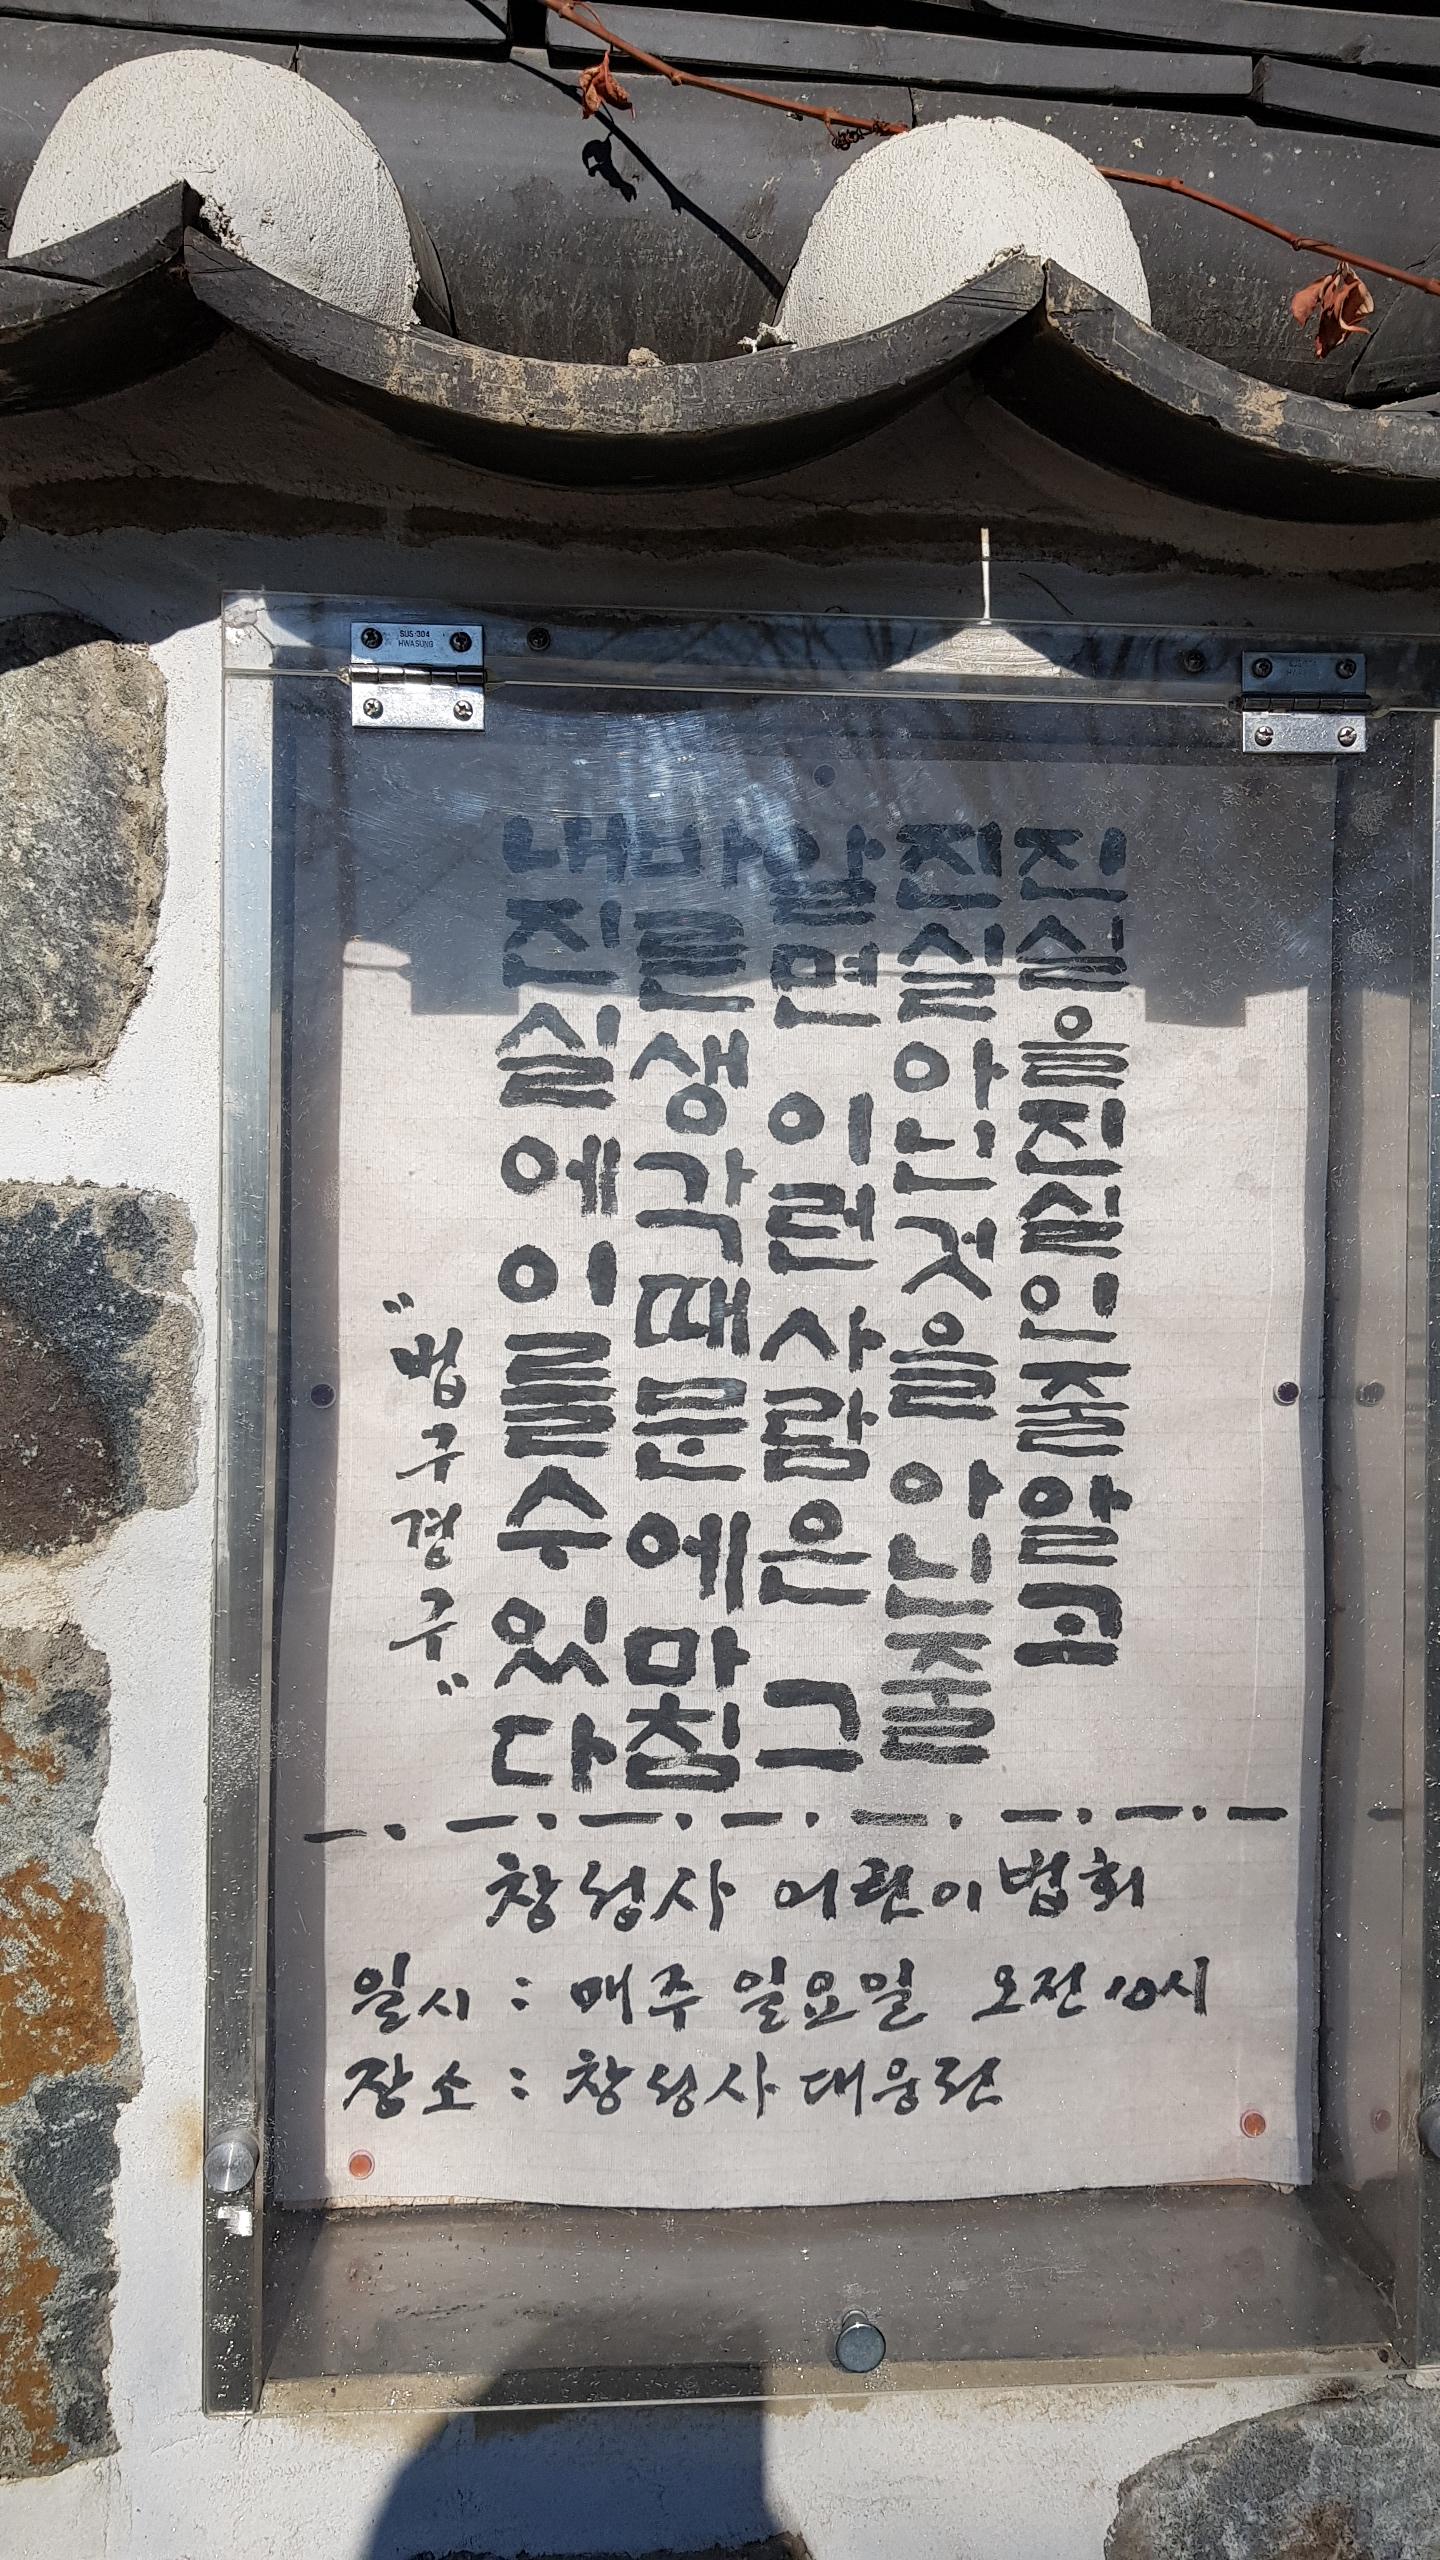 SUS-304
HWASUNG
진실을진실인줄알고
진실아닌것을 아닌줄
알면 이런사람은 그
바른생각때문에마침
내진실에이를수있다
"법구경구"
창성사 어린이법회
일시 : 매주 일요일 오전 10시
장소 : 창성사 대웅전